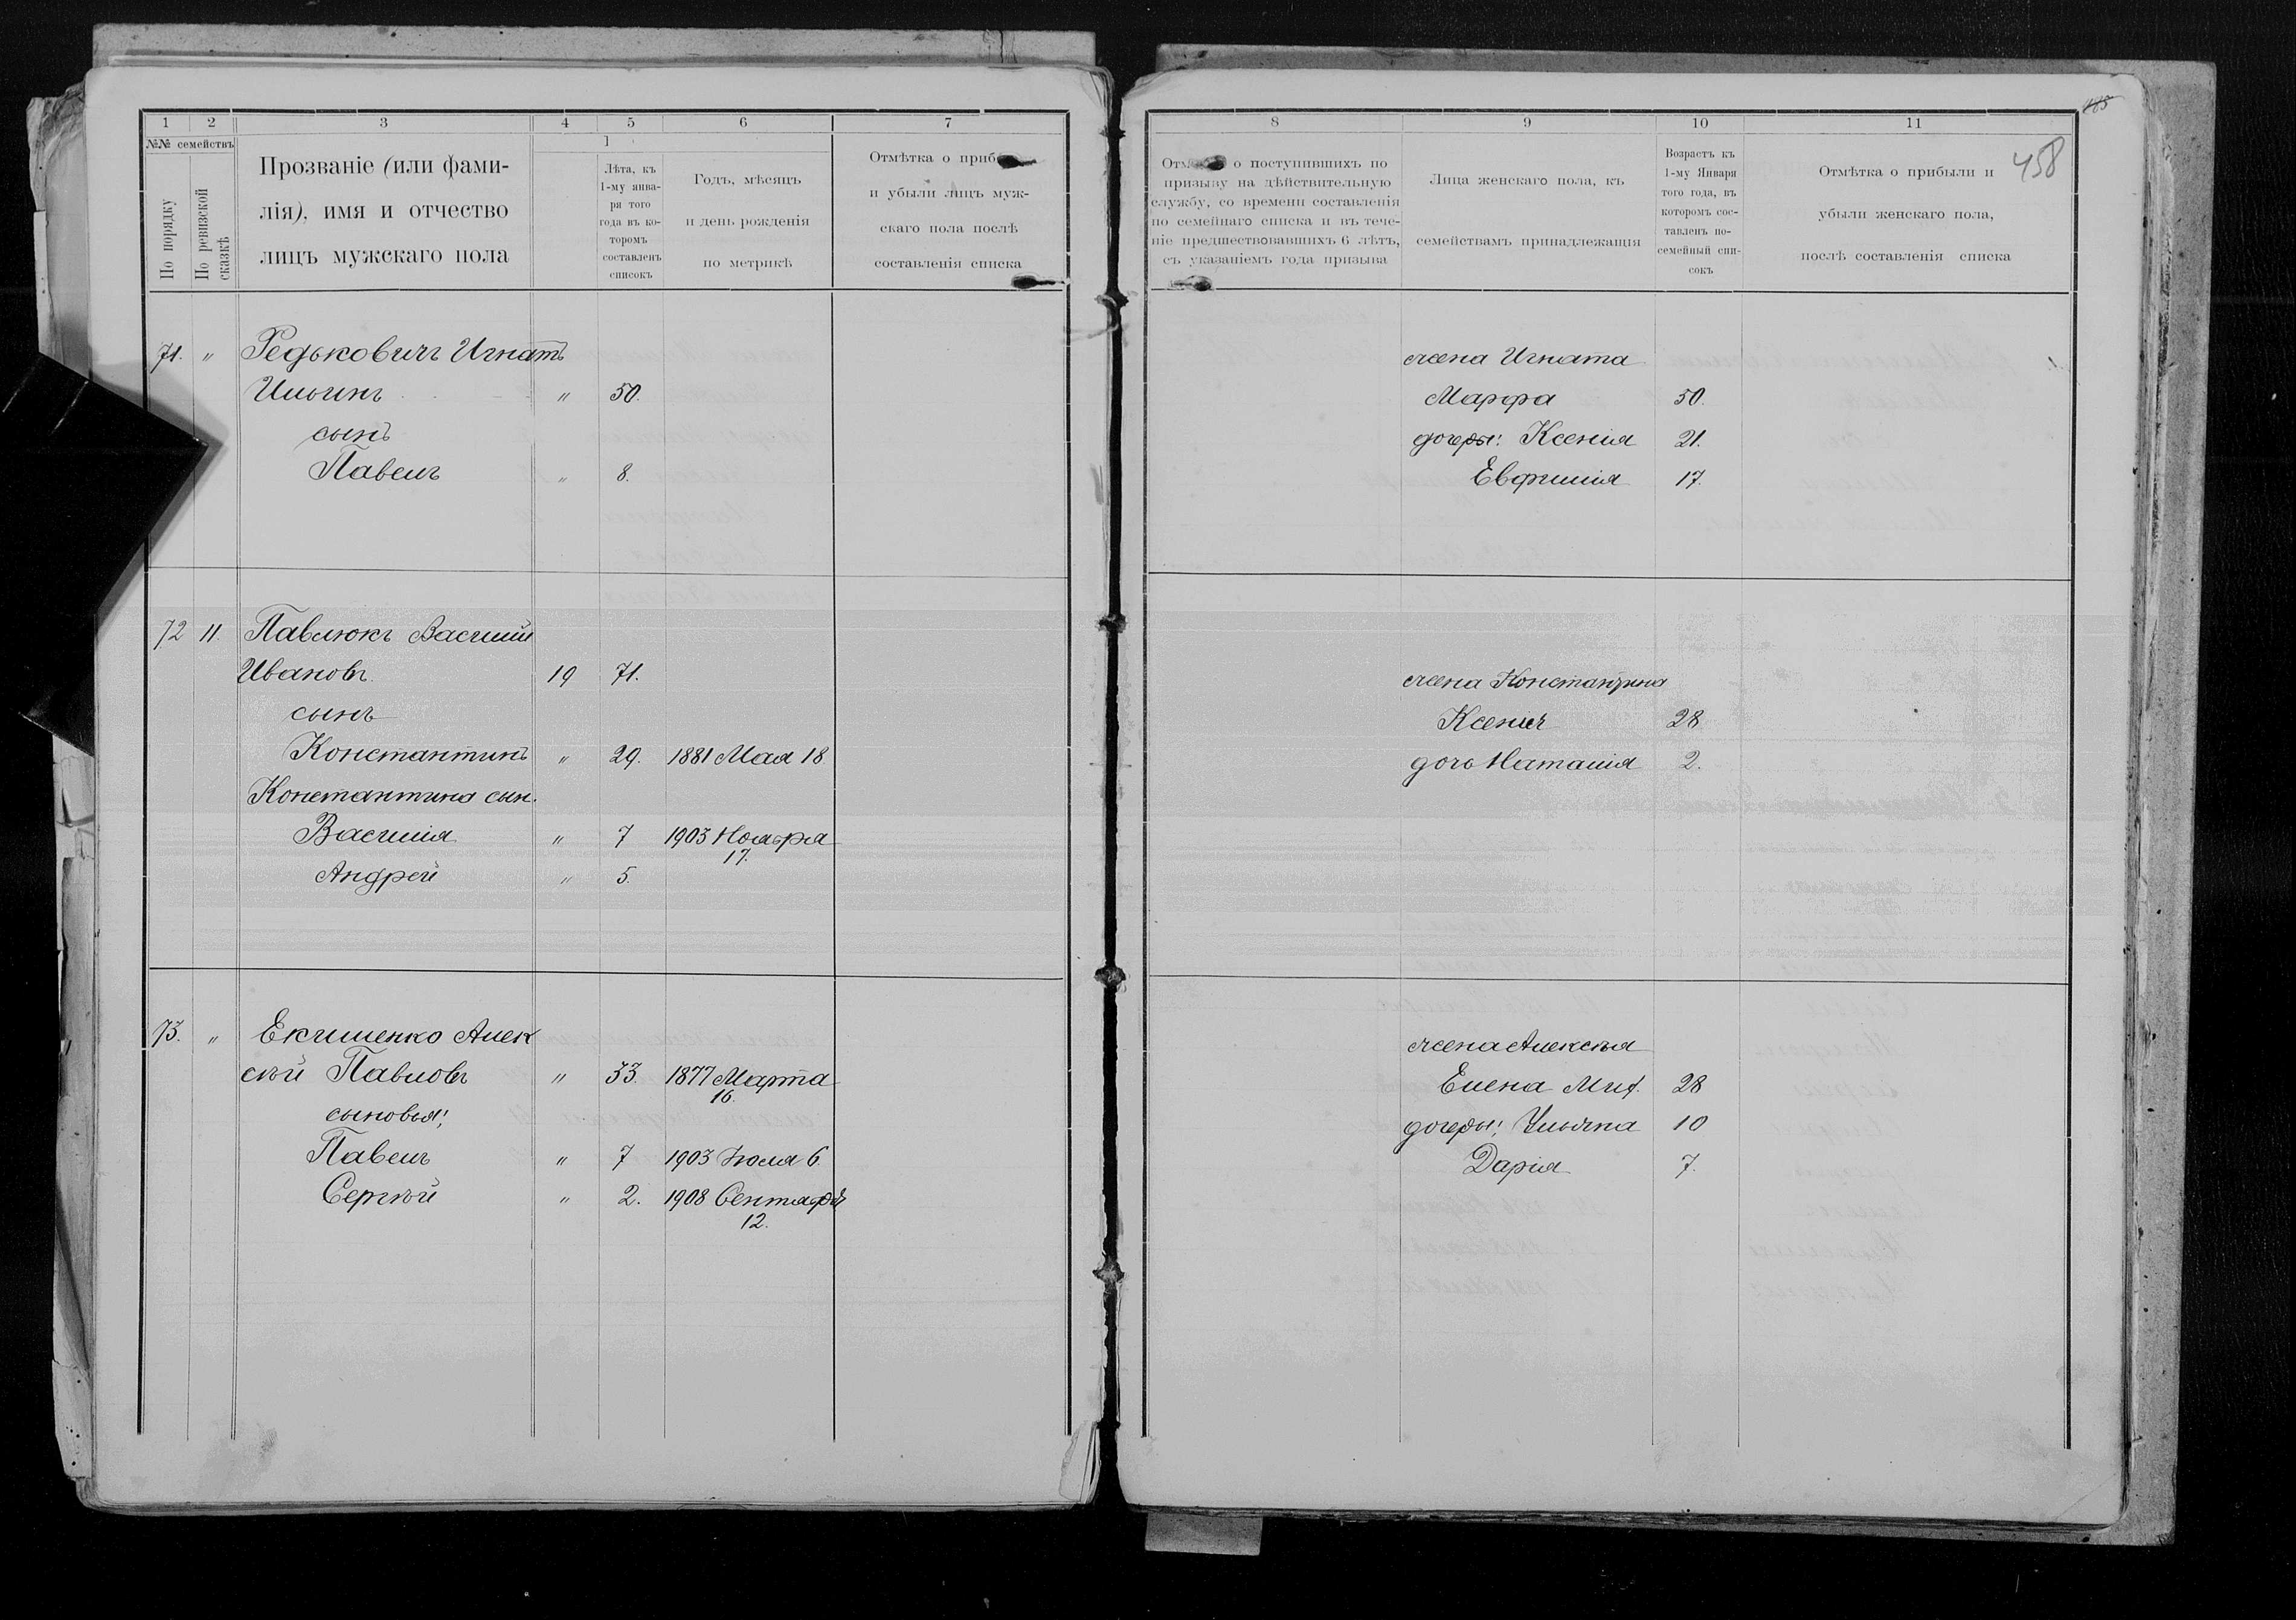 1 2 3 4 5 6 7
№№ семействъ
По порядку
По ревизской сказкѣ
Прозваніе (или фами-
лія), имя и отчество
лицъ мужскаго пола
Лѣта, къ
1-му янва-
ря того
года въ ко-
торомъ
составленъ
списокъ
Годъ, мѣсяцъ
и день рожденія
по метрикѣ
Отмѣтка о приб
и убыли лицъ муж-
скаго пола послѣ
составленія списка
71. " Редьковичъ Игнатъ
Ильинъ " 50.
сынъ
Павелъ " 8.
72 11. Павлюкъ Василий
Ивановъ 19 71.
сынъ
Константинъ " 29. 1881 Мая 18
Константина сын.
Василия " 7 1903 Ноября
17.
Андрей " 5.
73. " Екименко Алек
сѣй Павловъ " 33. 1877 Марта
16.
сыновья:
Павелъ " 7 1903 Іюля 6.
Сергѣй " 2. 1908 Сентября
12.
8 9 10 11
185
458
о поступившихъ по
призыву на дѣйствительную
службу, со времени составленія
по семейнаго списка и въ тече-
ніе предшествовавшихъ 6 лѣтъ,
съ указаніемъ года призыва
Лица женскаго пола, къ
семействамъ принадлежащія
Возрастъ къ
1-му Января
того года, въ
которомъ сос-
тавленъ по-
семейный спи-
сокъ
Отмѣтка о прибыли и
убыли женскаго пола,
послѣ составленія списка
жена Игната
Марфа 50.
дочеры: Ксенія 21.
Евфимія 17.
жена Константина
Ксенія 28
дочь Наталія 2.
жена Алексѣя
Елена Миф. 28
дочеры: Ульяна 10
Дарія 7.